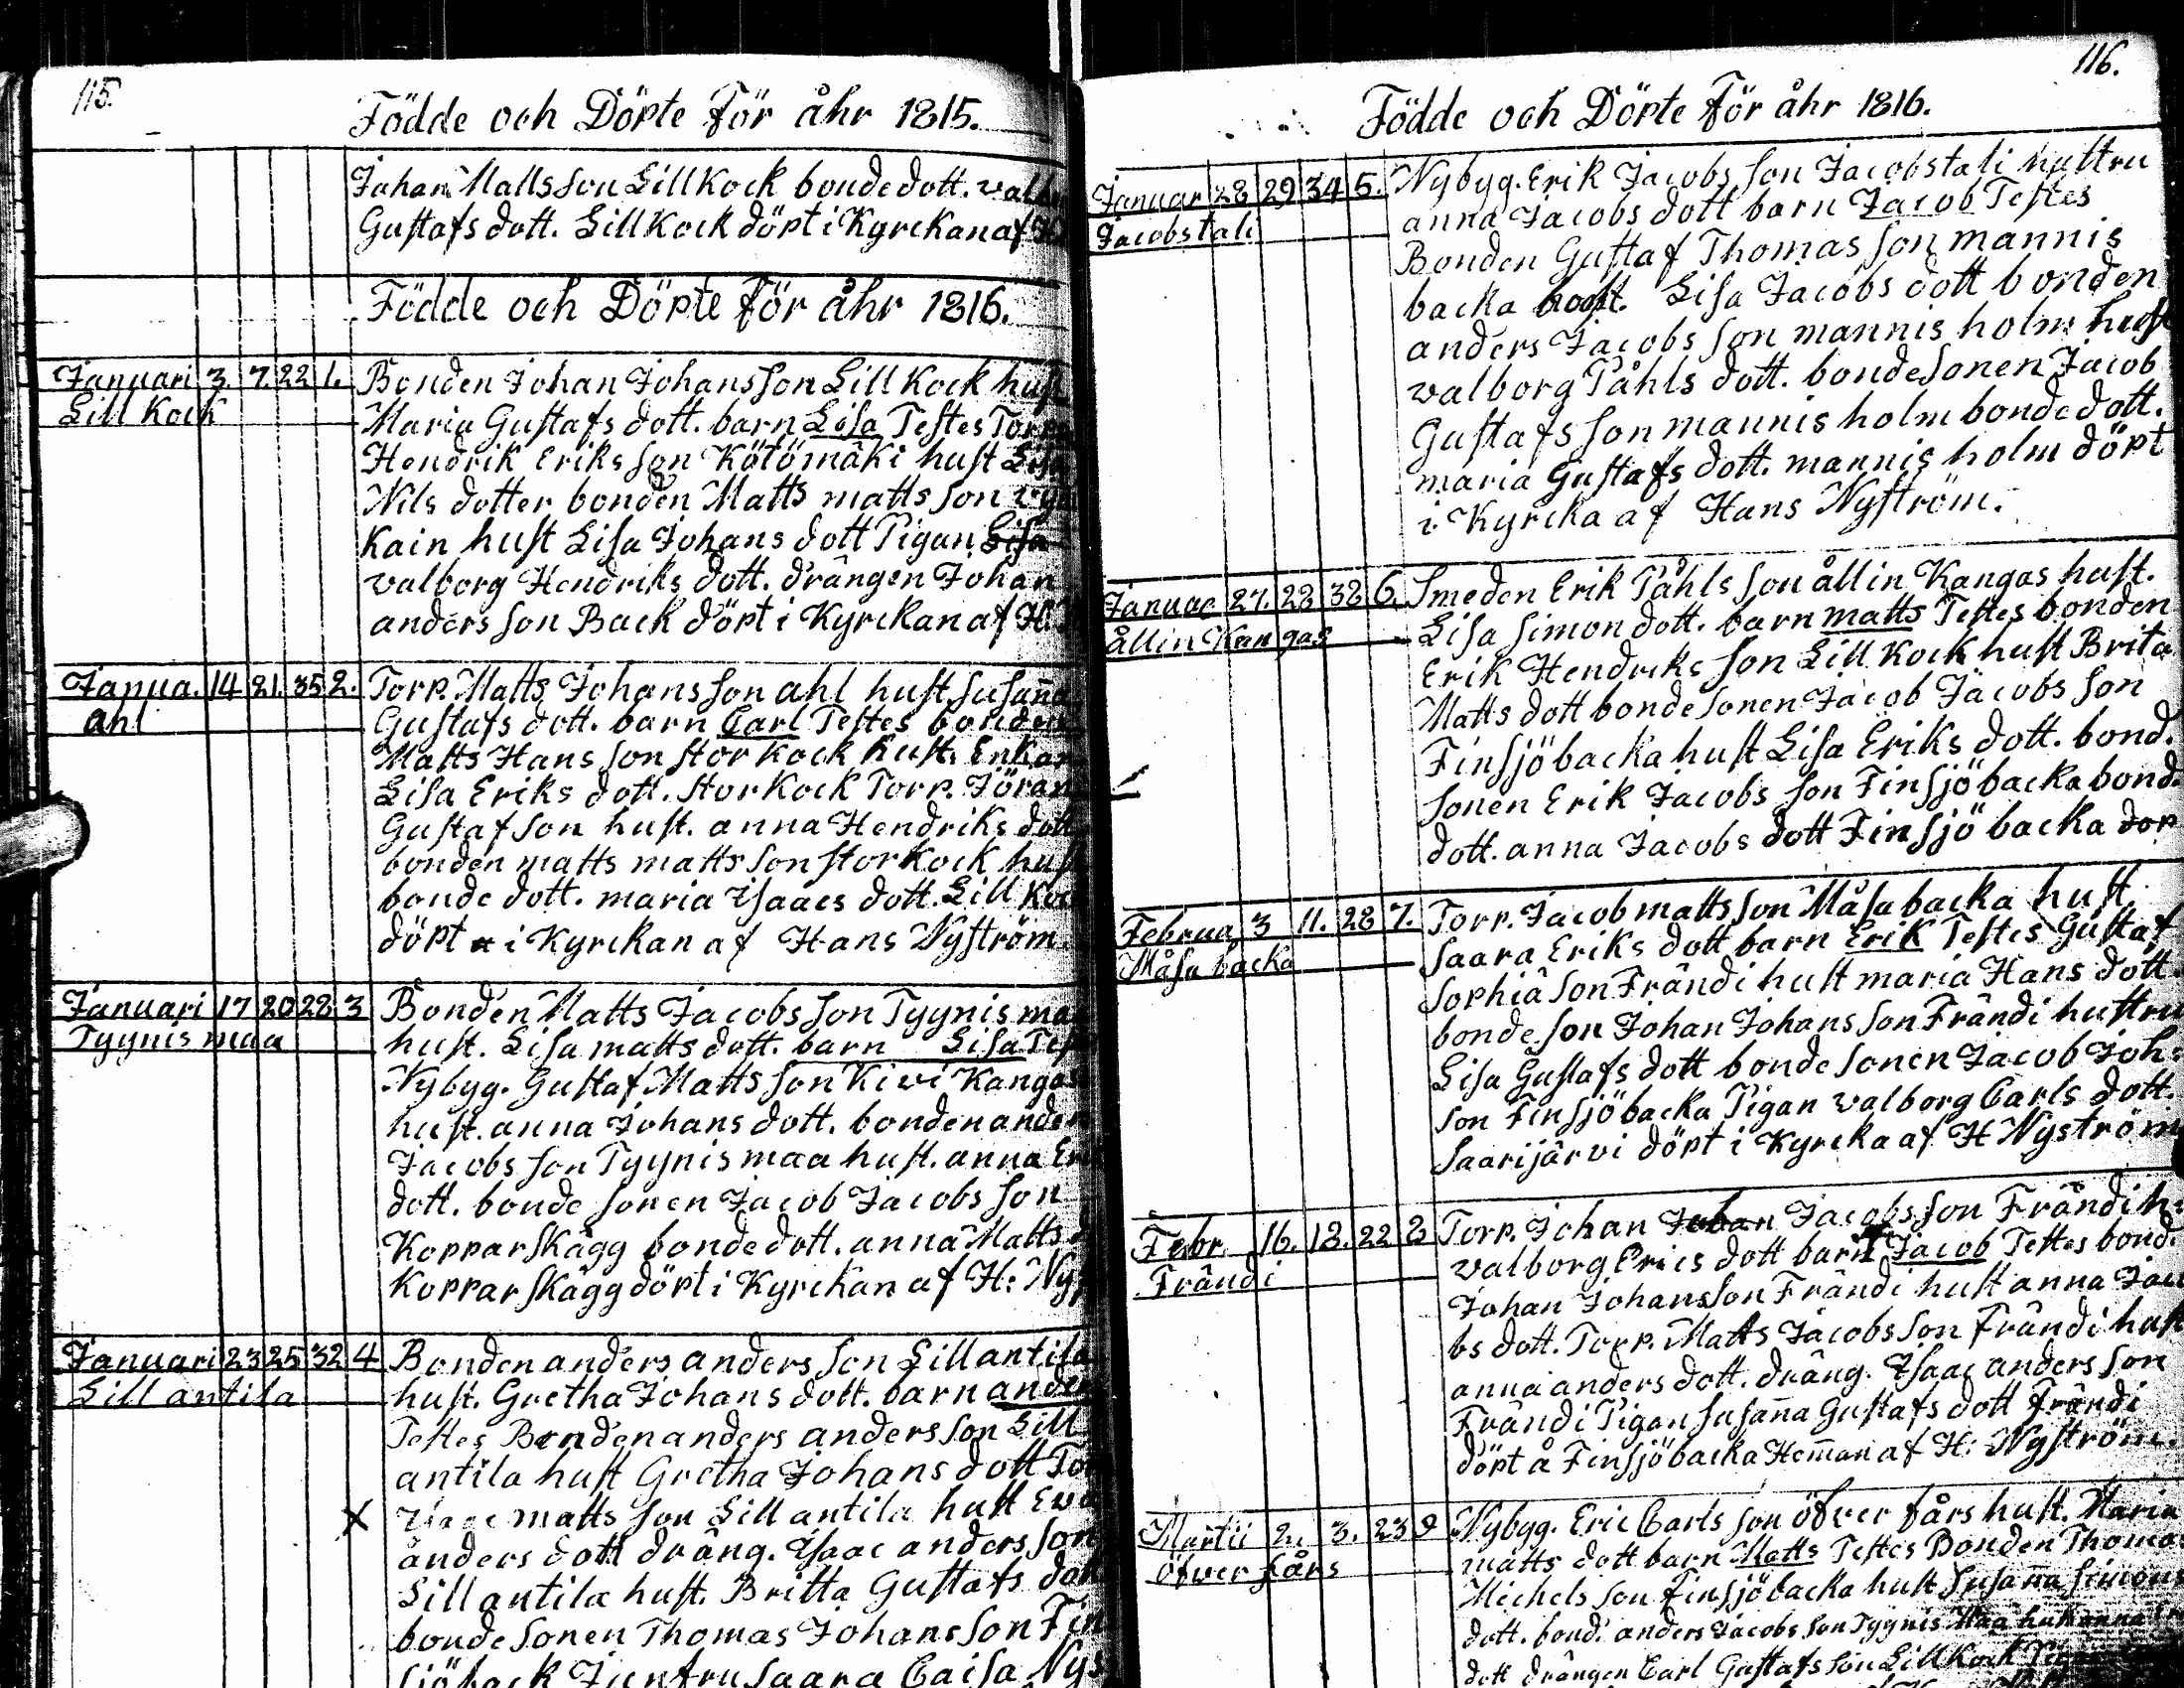 115.
Födde och Döpte För åhr 1815.
Johan Mattsson Lillkock bondedott.
Gustafs dott. Lillkock döpt i Kyrckan af
Födde och Döpte för åhr 1816.
Januari 3. 7. 22 1. Bonden Johan Johansson Lill Kock hust
Lill Kock Maria Gustafs dott. barn Lisa Testes
Hendrik Eriks son Kötömäki hust Lisa
Nils dotter bonden Matts matts son
Kain hust Lisa Johans dott Pigan Lisa
valborg Hendriks dott. drängen Johan
anders son Back döpt i Kyrckan af H:
Janua. 14 21. 35 2. Torp. Matts Johansson ahl hust Susanna
ahl Gustafs dott. barn Carl Testes bonden
Matts Hans son storkock hust. Enkan
Lisa Eriks dott. storkock Torp. Jöran
Gustafson hust. anna Hendriks dott
bonden matts matts son storkock hust
bonde dott. maria Isaacs dott. Lill
döpt i Kyrckan af Hans Nyström.
Januari 17 20 28 3 Bonden Matts Jacobsson Tyynis
Tyynis maa hust. Lisa matts dott. barn Lisa
Nybyg. Gustaf Matts son Kivi Kangas
hust. anna Johans dott. bonden
Jacobs son Tyynismaa hust. anna
dott. bonde sonen Jacob Jacobs son
Kopparskägg bondedott. anna Matts
Kopparskägg döpt i Kyrckan af H:
Januari 23 25 32 4 Bonden anders anders son Lillantila
Lill antila hust. Gretha Johans dott. barn
Testes Bonden anders anders son Lill
antila hust Gretha Johans dott
X matts son Lill antila hust
anders dott dräng. Isaac anders son
Lillantila hust. Britta Gustafs dott
bonde sonen Thomas Johans son Fin
sjöback Jumfru Saara Caisa
116.
Födde och Döpte För åhr 1816.
Januar 28 29 34 5. Nybyg. Erik Jacobs son Jacobstali hustru
Jacobstali anna Jacobs dott barn Jacob Testes
Bonden Gustaf Thomas son mannis
backa hust. Lisa Jacobs dott bonden
anders Jacobs son mannis holm hust
valborg Påhls dott. bondesonen Jacob
Gustafs son mannis holm bondedott.
maria Gustafs dott. mannis holm döpt
i Kyrcka af Hans Nyström.
Januar 27. 28 38 6. Smeden Erik Påhls son ållin Kangas hust.
ållin Kangas Lisa Simon dott. barn matts Testes bonden
Erik Hendriks son Lill Kock hust Brita
Matts dott bonde sonen Jacob Jacobs son
Finsjöbacka hust Lisa Eriks dott. bond.
sonen Erik Jacobs son Finsjöbacka bond.
dott. anna Jacobs dott Finsjöbacka döp
Februa 3 11. 28 7. Torp. Jacob matts son Måsabacka hust
Måsabacka Saara Eriks dott barn Erik Testes Gustaf
Sophia son Frändi hust maria Hans dott
bonde son Johan Johans son Frändi hustru
Lisa Gustafs dott bonde sonen Jacob Joh.
son Finsjöbacka Pigan valborg Carls dott.
Saarijärvi döpt i Kyrcka af H Nyström
Febr. 16. 18. 22 8 Torp. Johan Johan Jacobs son Frändi h.
Frändi valborg Erics dott barn Jacob Testes bond.
Johan Johansson Frändi hust anna Jaco
bs dott. Torp. Matts Jacobs son Frändi hust
anna anders dott. dräng. Isaac anders son
Frändi Pigan Susanna Gustafs dott Frändi
döpt å Finsjöbacka Hemman af H: Nyström.
Martii 2. 3. 23 9 Nybyg. Eric Carls son öfver fårs hust. Maria
öfver fårs matts dott barn Matts Testes Bonden Thomas
Michels son Finsjöbacka hust Susanna Simons
dott. bond. anders Jacobs son Tyynis Maa hust anna
dott drängen Carl Gustafs son Lill Kock